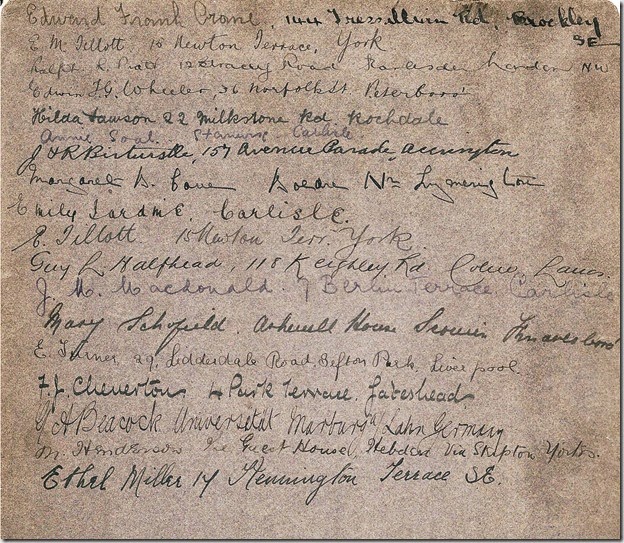 Edward Frank Crane, 144 Tressillian Rd, Brockley
SE
E. M. Tillott, 15 Newton Terrace, York
Ralph R. Pratt 12 Road Harlesden London NW
Edwin F.G. Wheeler, 36 Norfolk St Peterboro'
Hilda Lawson 22 Milkstone Rd, Rochdale
Annie Soal. Stanwix Carlisle
J & R Birtwistle, 157 Avenue Parade, Accrington
Margaret B. Cave Boldre Nr Lymington
Emily Jardine, Carlisle.
E. Tillott 15 Newton Terr. York.
Guy L Halfhead, 118 Keighley Rd Colne, Lancs.
J. M. Macdonald. 7 Berlin Terrace, Carlisle
Mary Schofield, House Scriven Knaresboro'
E Turner 29, Lidderdale Road, Sefton Park, Liverpool.
F.J. Cheverton 4 Park Terrace, Gateshead
A Beacock Universitat Marburg a/ Lahn Germany
M. Henderson The Guest House, Hebden Via Skipton Yorks.
Ethel Miller 14 Kennington Terrace S.E.